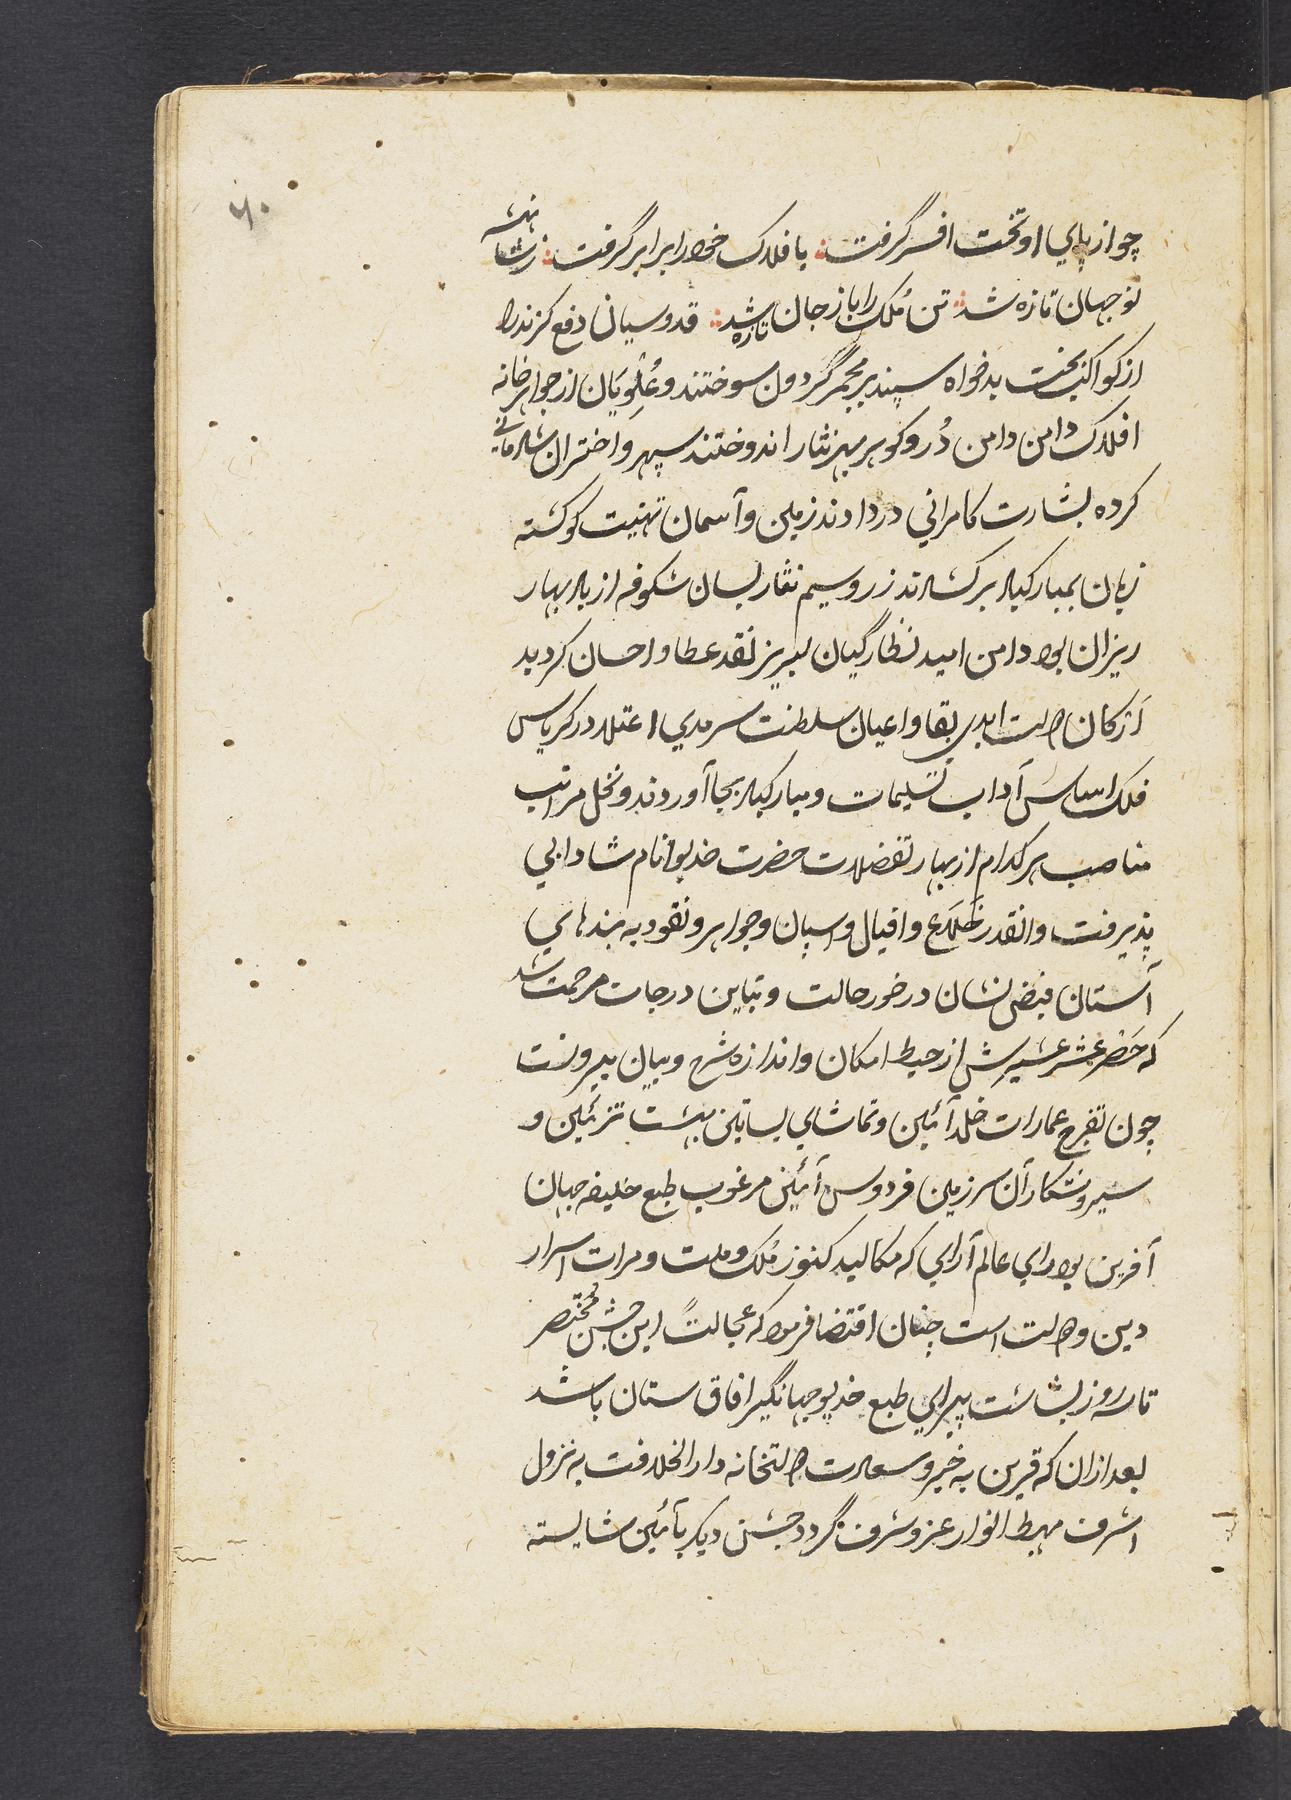 ۶۰
چو از پای او تخت افسر گرفت با فلک خود را برابر گرفت ز شاهنشه
نو جهان تازه شد تن مُلک را باز جان تازه شد قدوسیان دفع گزند را
از کواکب بخت بدخواه سپند بر مجمر گردون سوختند و عُلویان از جواهرخانه
افلاک دامن دامن دُر و گوهر بهر نثار اندوختند سپهر و اختران شادمانی
کرده بشارت کامرانی در دادند زمین و آسمان تهنیت گو گشته
زبان بمبارکباد برکشادند زر و سیم نثار بسان شکوفه از باد بهار
ریزان بود دامن امید نظارگیان لبریز نقد عطا و احسان گردید
اَرکان دولت ابدی بقا و اعیان سلطنت سرمدی اعتلا در کریاس
فلک اساس آداب تسلیمات و مبارکباد بجا آوردند و نخل مراتب
مناصب هر کدام از بهار تفضلات حضرت خدیو انام شادابی
پذیرفت و انقدر خلاع و افیال و اسپان و جواهر و نقود به بندهای
آستان فیض نشان در خور حالت و تباین درجات مرحمت شد
که حَصْر عشر عشیرش از حیطه امکان و اندازه شرح و بیان بیرونست
چون تفرج عمارات خلد آئین و تماشای بساتین بهشت تزئین و
سیر و شکار آن سرزمین فردوس آئین مرغوب طبع خلیفه جهان
آفرین بود رای عالم آرای که مکالید کنوز مُلک و ملت و مرات اسرار
دین و دولت است چنان اقتضا فرمود که عجالتً این جشن مختصر
تا سه روز بشاشت پیرای طبع خدیو جهانگیر افاق ستان باشد
بعد ازان که قرین به خیر و سعادت دولتخانه دار الخلافت به نزول
اشرف مهبط انوار عز و شرف گردد جشنی دیگر بآئین شایسته